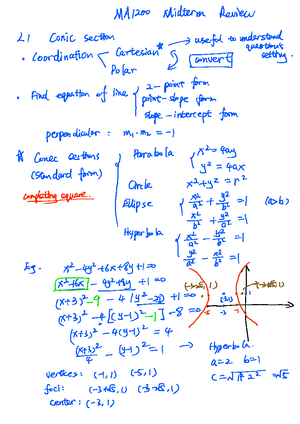 MA1200 Midterm Review
L1 Conic section
• coordination Cartesian* → useful to understand question's setting.
Polar convert
• Find equation of line 2-point form
point-slope form
slope-intercept form
perpendicular : m₁·m₂ = -1
* Conic sections (standard form)
completing square.
Parabola x² = 4ay
y² = 4ax
Circle x² + y² = r²
Ellipse x²/a² + y²/b² = 1 (a>b)
x²/b² + y²/a² = 1
Hyperbola x²/a² - y²/b² = 1
y²/a² - x²/b² = 1
Eg. x² - 4y² + 6x + 8y + 1 = 0
x² + 6x - 4y² + 8y + 1 = 0
(x+3)² - 9 - 4(y² - 2y) + 1 = 0
(x+3)² - 4[(y-1)² - 1] - 8 = 0
(x+3)² - 4(y-1)² = 4
(x+3)²/4 - (y-1)² = 1 → Hyperbola.
a=2 b=1
vertices: (-1, 1) (-5, 1)
foci: (-3+√5, 1) (-3-√5, 1)
center: (-3, 1)
-5 -3 -1